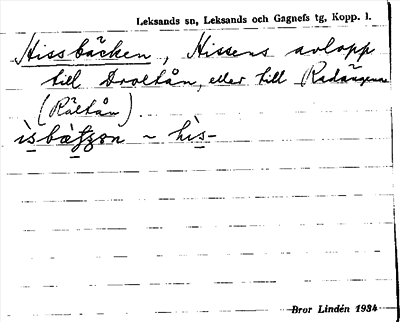 Leksands sn, Leksands och Gagnefs tg, Kopp. l.
Hissbäcken, Hissens avlopp
till Droltån, eller till Radängena
(Rältån).
ìsbàkkon ~ hìs-
Bror Lindén 1934